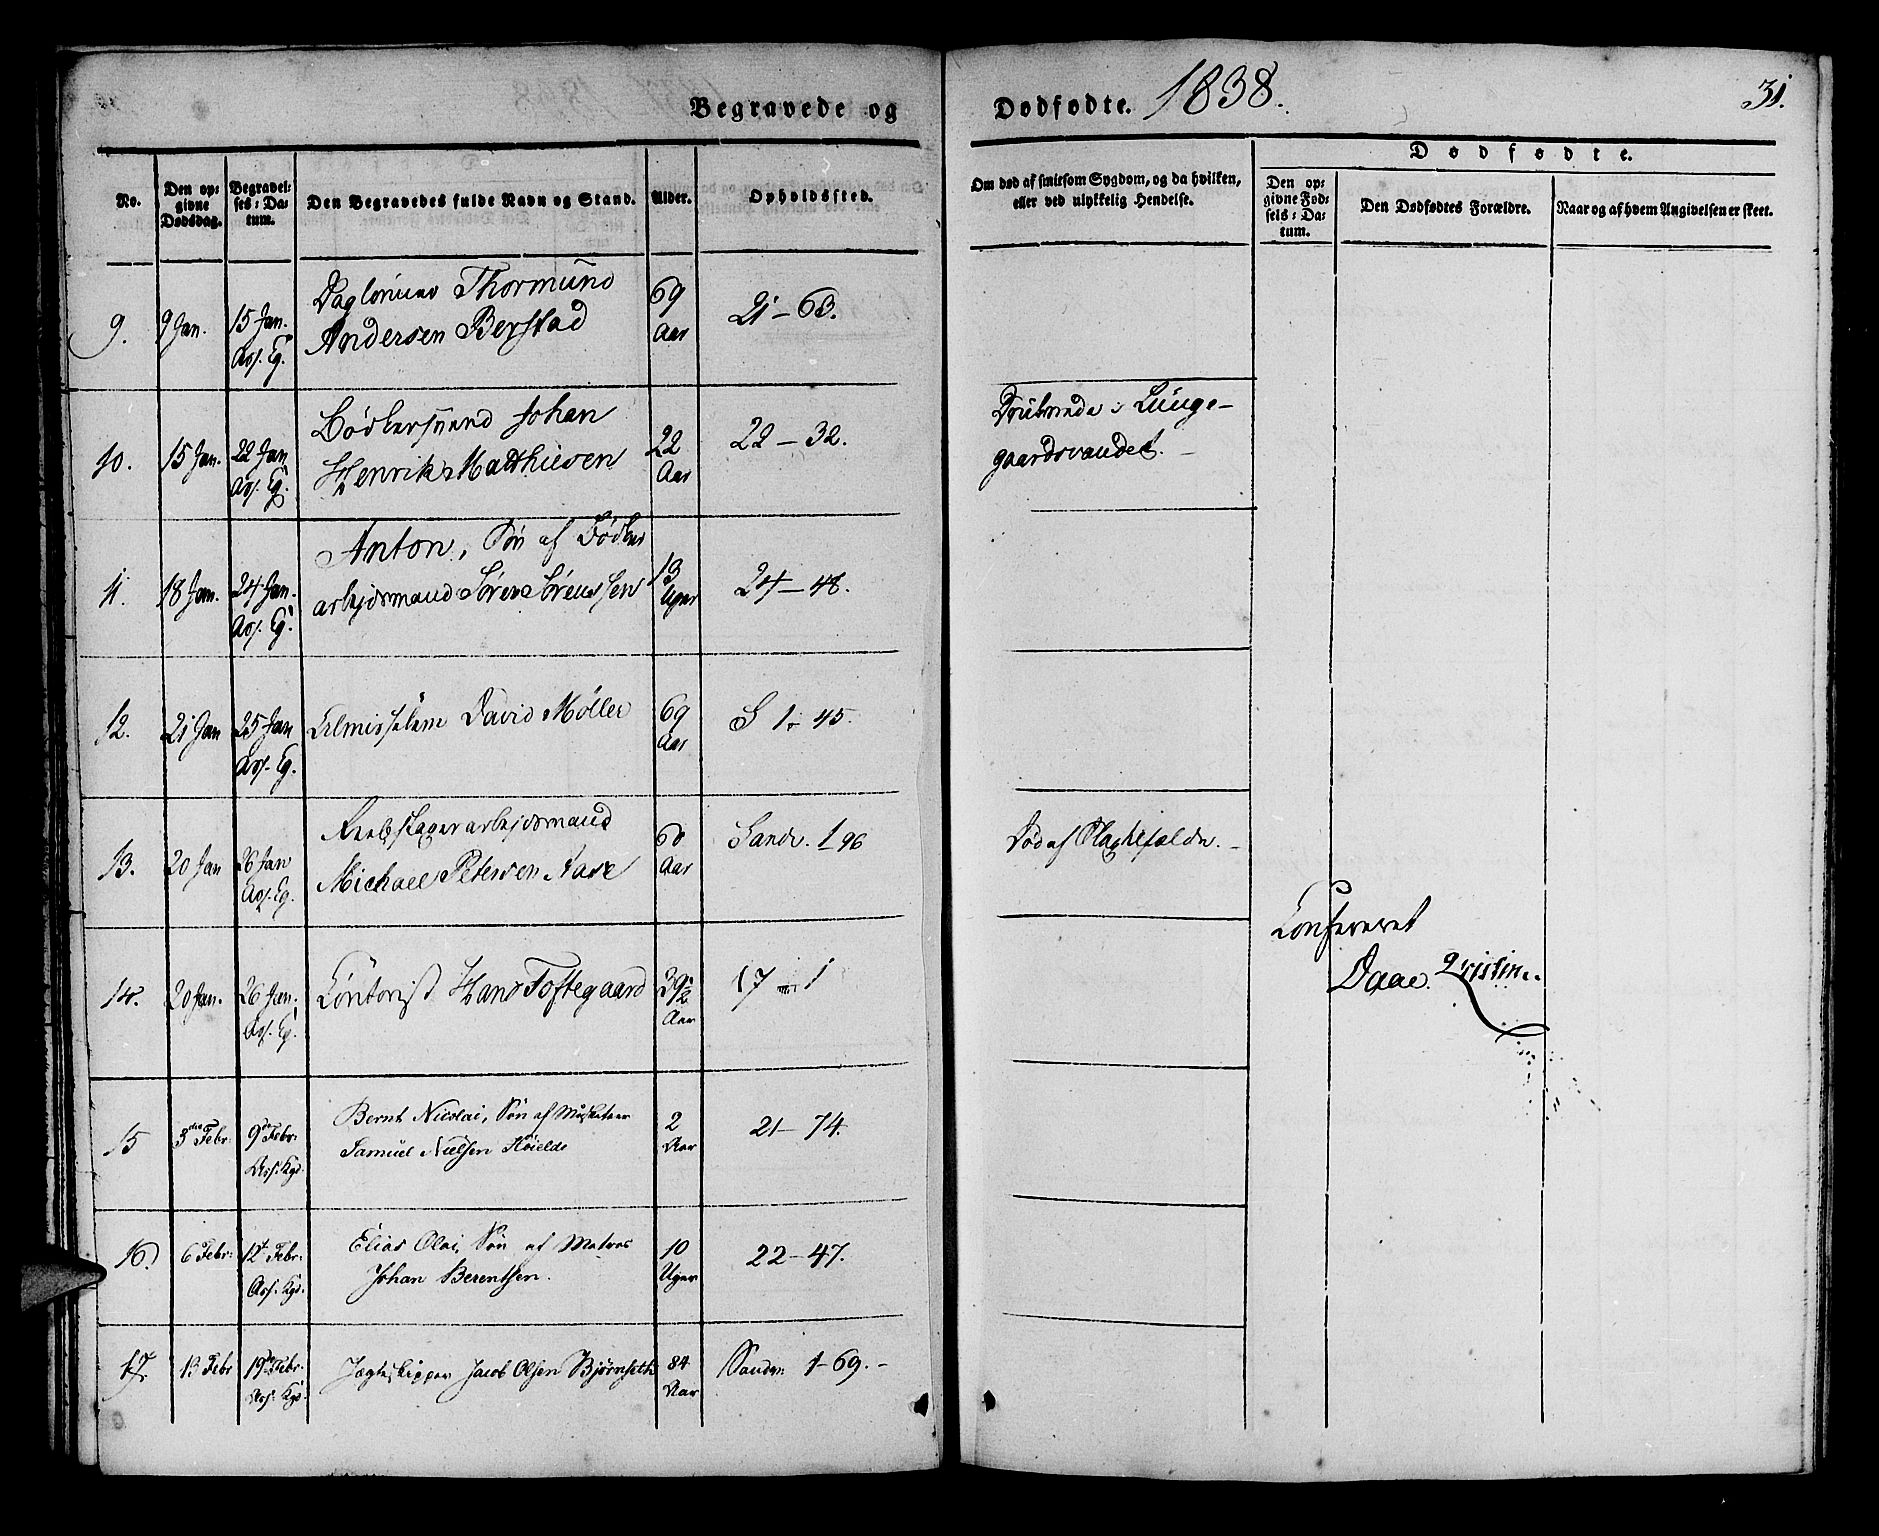 Begravede og Dødfødte. 1838. 31.
No.
Den op=
givne
Dødsdag.
Begravel=
ses=Da=
tum.
Den Begravedes fulde Navn og Stand.
Alder.
Opholdssted.
Om død af smitsom Sygdom, og da hvilken,
eller ved ulykkelig Hendelse.
Dødfødte.
Den op=
givne Fød=
sels=Da=
tum.
Den Dødfødtes Forældre.
Naar og af hvem Angivelsen er skeet.
9. 9 Jan. 15 Jan. Ass. Eg.
Dagleiner Thormund
Andersen Berstad
69 Aar
21 - 63.
10. 15 Jan. 22 Jan Ass. Eg.
Bødkersvend Johan
Henrik Matthiesen
22 Aar
22 - 32.
Druknede i Lunge-
gaardsvandet.
11. 18 Jan. 24 Jan. Ass. Eg.
Anton, Søn af Bødker
arbejdsmand Søren Sørenssen
13 Uger
24 - 48.
12. 21 Jan 25 Jan Ass. Eg.
Almisselem David Møller
69 Aar
S 1. 45.
13. 20 Jan 26 Jan Ass. Eg.
Reebslagerarbejdsmand
Michael Petersen Aase
60 Aar
Sandv. 1 96
Død af
14. 20 Jan. 26 Jan. Ass. Eg.
Contorist Hans Toftegaard
39½ Aar
17 - 1
Confereret
Daae.
15 3die Febr. 9de Febr. Ass. Kgs.
Bernt Nicolai, Søn af Musketeer
Samuel Nielsen
2 Aar
21 - 74.
16. 6 Febr: 12t Febr. Ass. Kgs.
Elias Olai, Søn af Matros
Johan Berentsen.
10 Uger
22 - 47.
17. 13 Febr 19de Febr. Ass. Kgs.
Jægteskipper Jacob Olsen Bjørnseth
84 Aar
Sandv. 1 - 69. -